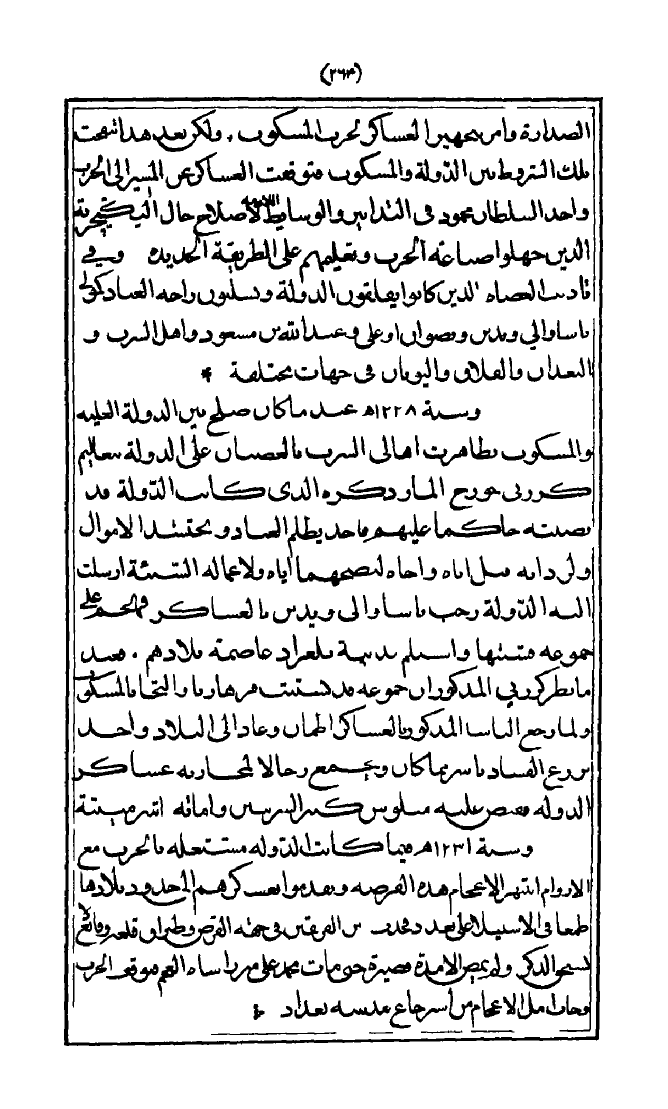 (٢٦٤)
الصدارة وامر بتجهيز العساكر لحرب المسكوب. ولكن بعد هذا تنقحت
تلك الشروط بين الدولة والمسكوب فتوقفت العساكر عن المسير الى الحرب
واخذ السلطان محمود في التدابير والوسايط الاصلاح حال اليكيجرية
الذين جهلوا صناعة الحرب وتعليمهم على الطريقة الجديده وفي
تاديب العصاه الذين كانوا يقلقون الدولة ويسلبون راحه العباد كولي
باسا والي ويدين وبصوان اوغلي وعبد الله بن مسعود واهل السرب و
البغدان والفلاق واليونان في جهات مختلفة *
وسنة ١٢٢٨هـ عند ما كان صلح بين الدولة العليه
والمسكوب تظاهرت اهالي السرب بالعصيان على الدولة بتعاليم
كررني جورج المار ذكره الذي كانت الدولة قد
نصبته حاكما عليهم فاخذ يظلم العباد ويحتشد الاموال
ولرداته قتل اباه واخاه لنصحهما اياه ولاعماله الشنيئة ارسلت
اليه الدولة رجب باسا والي ويدين بالعساكر فهجم على
جموعه فشتتها واستلم مدينة بلغراد عاصمة بلادهم. فعند
ما نظر كررني المذكور ان جموعه قد تشتت فر هاربا والتجا بالمسكوب
ولما رجع الباسا المذكور بالعساكر اطمان وعاد الى البلاد واخذ
يزرع الفساد باسر مما كان ويجمع رجالا لمحاربة عساكر
الدوله فقبض عليه ميلوس كبير السربيين واماته اشر ميتة
وسنة ١٢٣١هـ فيما كانت الدوله مشتغله بالحرب مع
الاروام انتهز الاعجام هذه الفرصه وتقدموا بعسكرهم الى حدود بلادها
طمعا في الاستيلا على بغداد فحدث بين الفريقين في جهة القرص وطبراق قلعه وقائع
تستحق الذكر ولم يمض الامدة قصيرة حتى مات محمد علي ميرزا شاه العجم فتوقف الحرب
وخاب امل الاعجام من استرجاع مدينه بغداد *